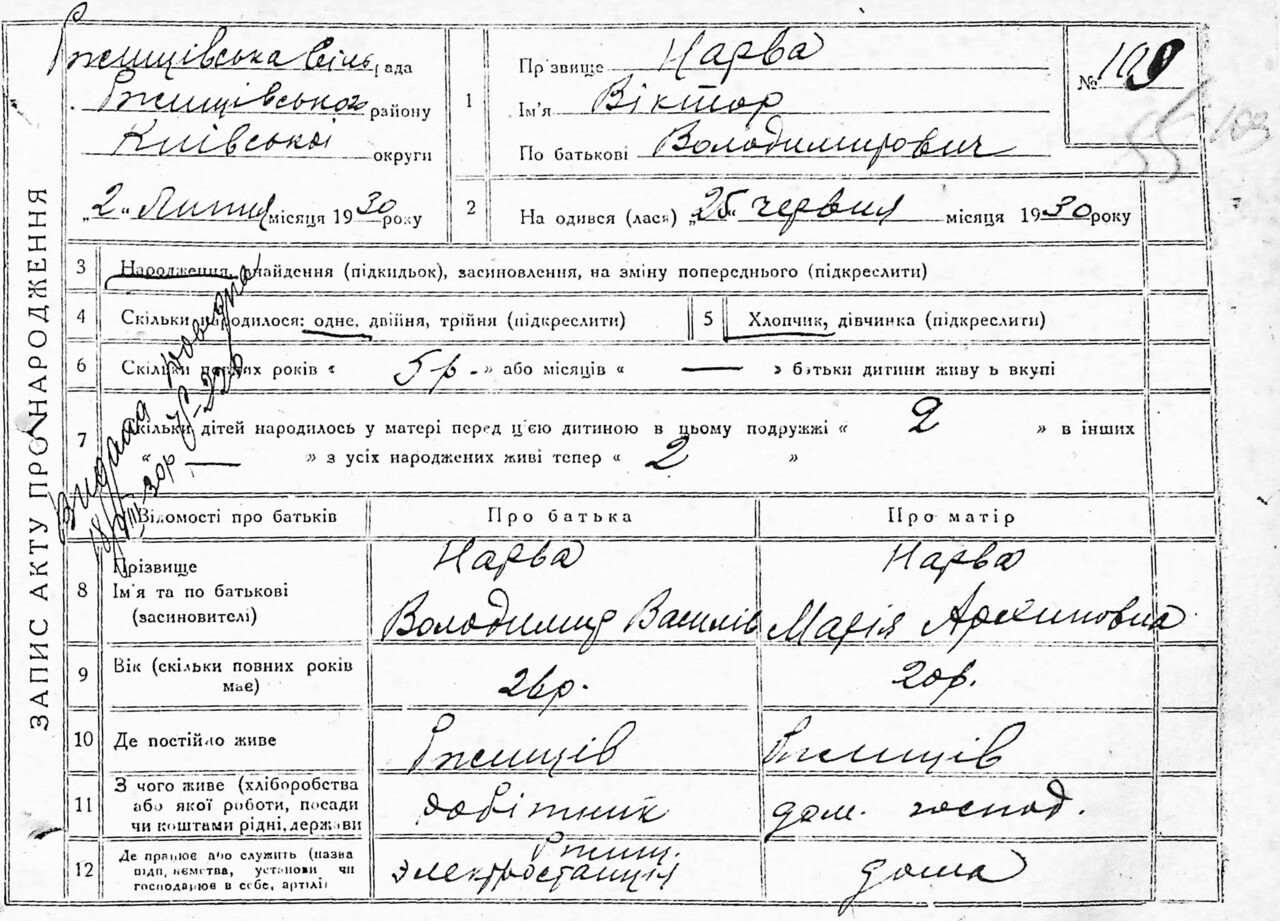 ЗАПИС АКТУ ПРО НАРОДЖЕННЯ
Ржищівська Сіль рада
Ржищівського району
Київської округи
"2" Липня місяця 1930 року
1 Прізвище Нарва
Ім'я Віктор
По батькові Володимирович
№ 100
55 103
2 На одився (лася) "25" червня місяця 1930 року
3 Народження, знайдення (підкидьок), засиновлення, на зміну попереднього (підкреслити)
4 Скільки народилося: одне, двійня, трійня (підкреслити)
5 Хлопчик, дівчинка (підкреслити)
6 Скільки повних років « 5 р. » або місяців « — » батьки дитини живу ь вкупі
7 Скільки дітей народилось у матері перед ц'єю дитиною в цьому подружжі « 2 » в інших
« — » з усіх народжених живі тепер « 2 »
Видана
18/VIII-30р
Відомості про батьків Про батька Про матір
8 Прізвище
Ім'я та по батькові
(засиновителі)
Нарва
Володимир Василів
Нарва
Марія Архиповна
9 Вік (скільки повних років має) 26р. 20р.
10 Де постійно живе Ржищів Ржищів
11 З чого живе (хліборобства
або якої роботи, посади
чи коштами рідні, держави
робітник
дом. господ.
12 Де працює або служить (назва
підприємства, установи чи
господарює в себе, артілі)
Ржищ.
Электростанція
дома